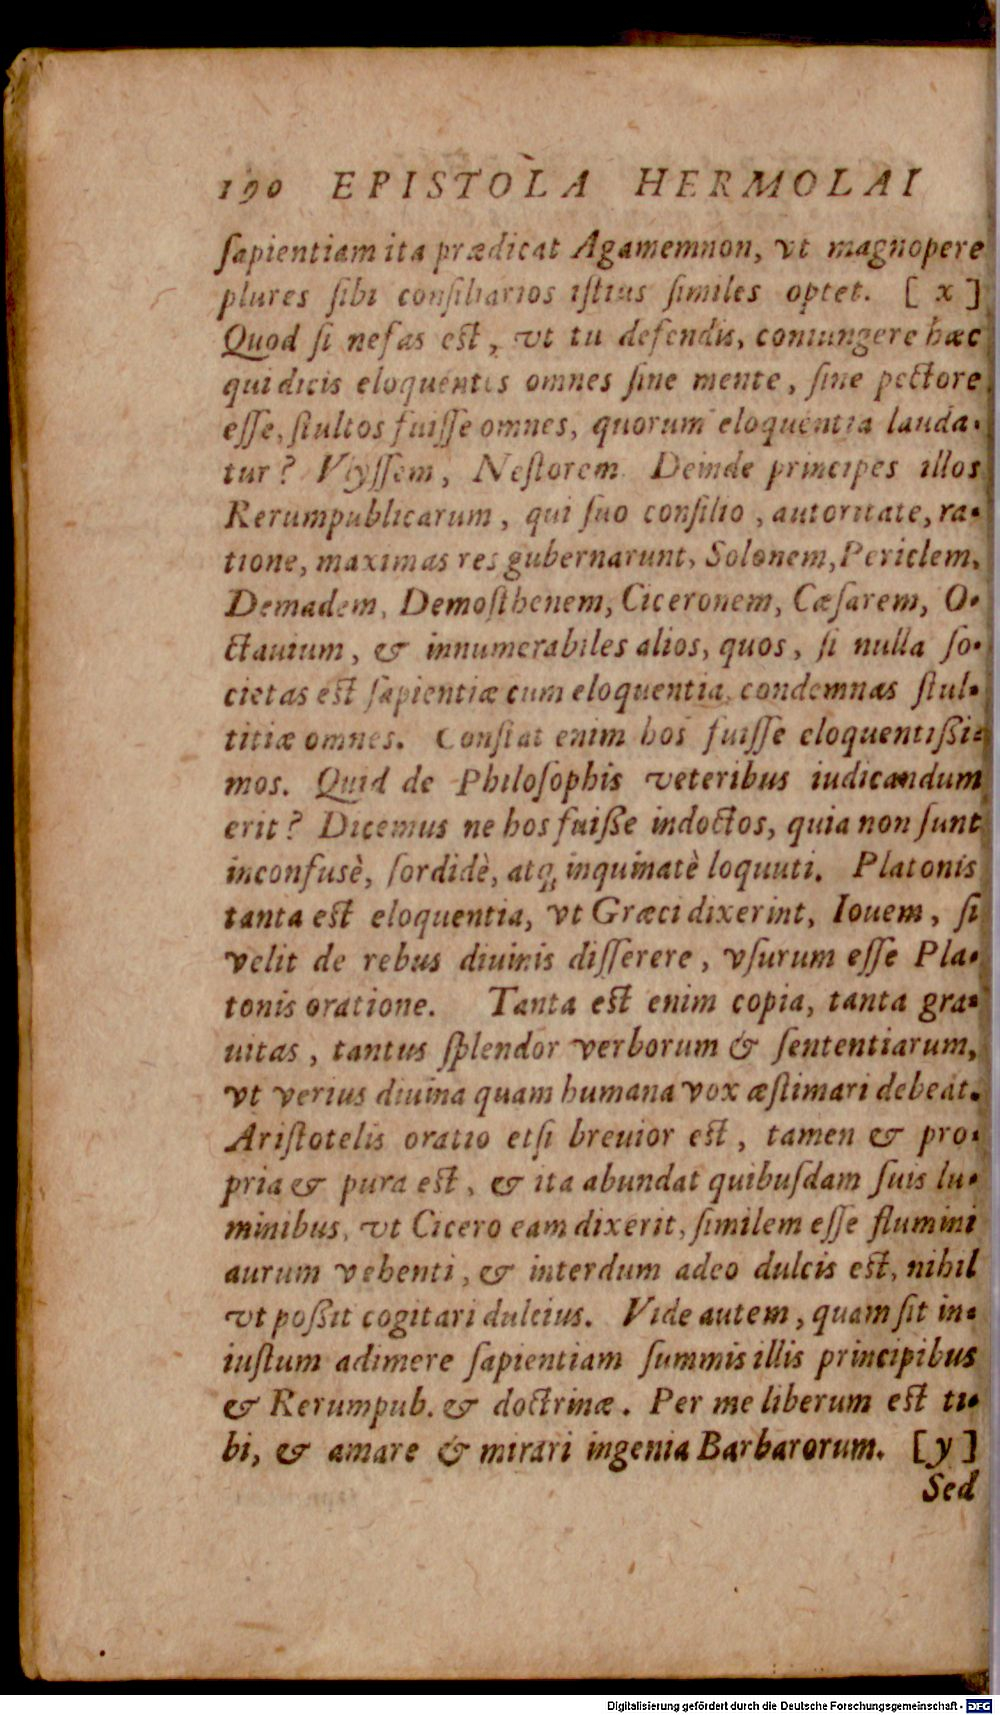 190 EPISTOLA HERMOLAI
ſapientiam ita prædicat Agamemnon, vt magnopere
plures ſibi conſiliarios iſtius ſimiles optet. [ x ]
Quod ſi nefas eſt, vt tu defendis, coniungere hæc
qui dicis eloquentes omnes ſine mente, ſine pectore
eſſe, ſtultos fuiſſe omnes, quorum eloquentia lauda-
tur? Vlyſſem, Neſtorem. Deinde principes illos
Rerumpublicarum, qui ſuo conſilio, autoritate, ra-
tione, maximas res gubernarunt, Solonem, Periclem,
Demadem, Demoſthenem, Ciceronem, Cæſarem, O-
ctauium, & innumerabiles alios, quos, ſi nulla ſo-
cietas eſt ſapientiæ cum eloquentia, condemnas ſtul-
titiæ omnes. Conſtat enim hos fuiſſe eloquentißi-
mos. Quid de Philoſophis veteribus iudicandum
erit? Dicemus ne hos fuiße indoctos, quia non ſunt
inconfusè, ſordidè, atq; inquinatè loquuti. Platonis
tanta eſt eloquentia, vt Græci dixerint, Iouem, ſi
velit de rebus diuinis diſſerere, vſurum eſſe Pla-
tonis oratione. Tanta eſt enim copia, tanta gra-
uitas, tantus ſplendor verborum & ſententiarum,
vt verius diuina quam humana vox æſtimari debeat.
Ariſtotelis oratio etſi breuior eſt, tamen & pro-
pria & pura eſt, & ita abundat quibuſdam ſuis lu-
minibus, vt Cicero eam dixerit, ſimilem eſſe flumini
aurum vehenti, & interdum adeo dulcis eſt, nihil
vt poßit cogitari dulcius. Vide autem, quam ſit in-
iuſtum adimere ſapientiam ſummis illis principibus
& Rerumpub. & doctrinæ. Per me liberum eſt ti-
bi, & amare & mirari ingenia Barbarorum. [ y ]
Sed
Digitalisierung gefördert durch die Deutsche Forschungsgemeinschaft - DFG